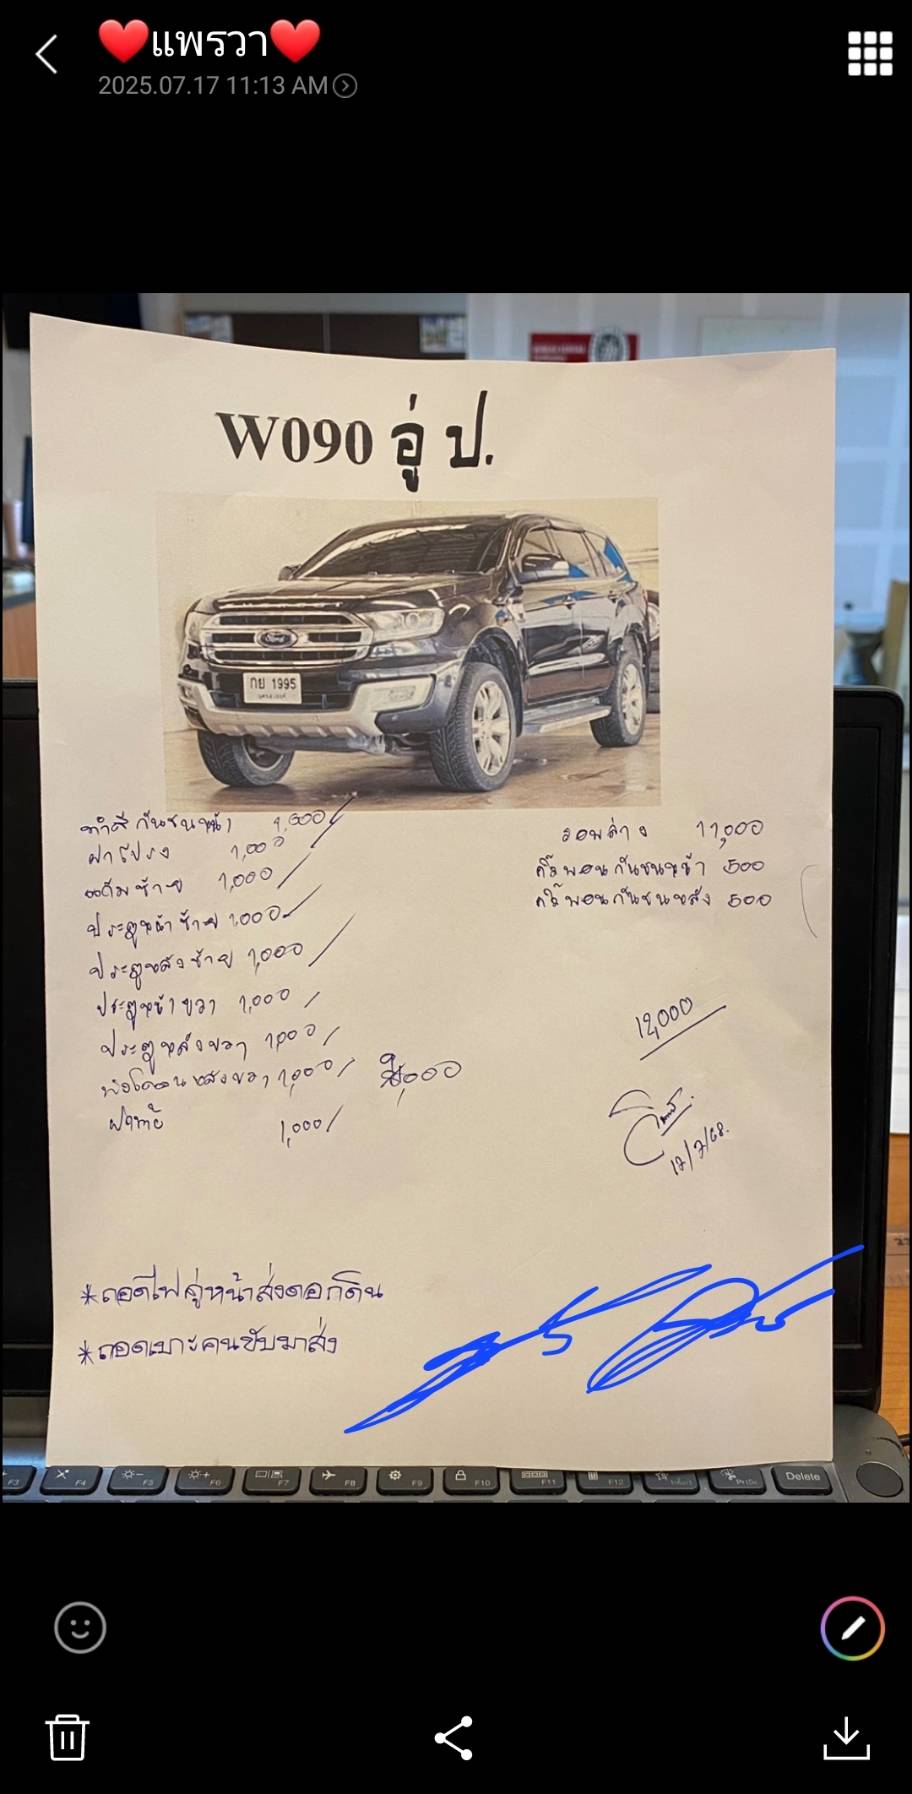 ❤️แพรวา❤️
2025.07.17 11:13 AM
W090 อู่ ป.
Ford
กย 1995
ทำสี กันชนหน้า
ฝาโปรง 1,000
แก้มซ้าย 1,000
ประตูหน้าซ้าย 1,000
ประตูหลังซ้าย 1,000
ประตูหน้าขวา 1,000
ประตูหลังขวา 1,000
หลังขวา 1,000
ฝาท้าย 1,000
,000
รอบล่าง 11,000
กันชนหน้า 500
กันชนหลัง 500
12,000
17/7/68.
*ถอดไฟคู่หน้าส่งดอกดิน
*ถอดเบาะคนขับมาส่ง
F4 F5 F6 F7 F8 F9 F10 F11 F12 Insert PrtSc Delete